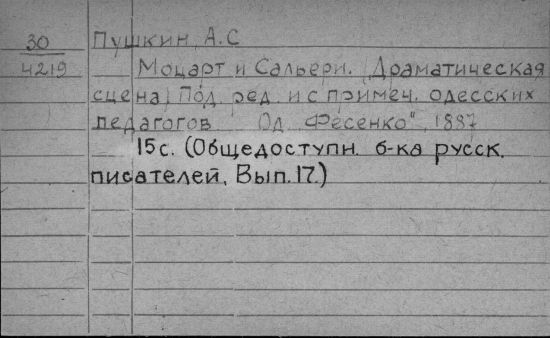 30
4219
Пушкин, А.С
Моцарт и Сальери. (Драматическая
сцена) Под ред. и с примеч. одесских
педагогов Од. Фесенко", 1887
15с. (Общедоступн. б-ка русск.
писателей, Вып. 17.)